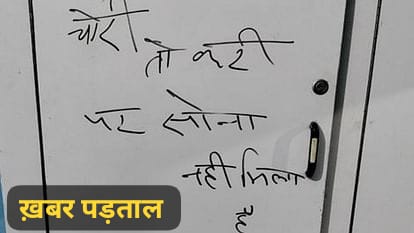 चोरी
तो करी
पर सोना
नही मिला
है
ख़बर पड़ताल